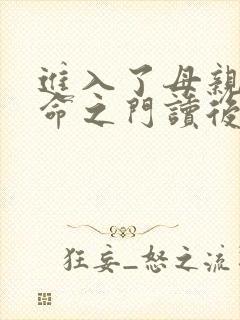 進入了母親
命之門讀後
狂妄_怒之流